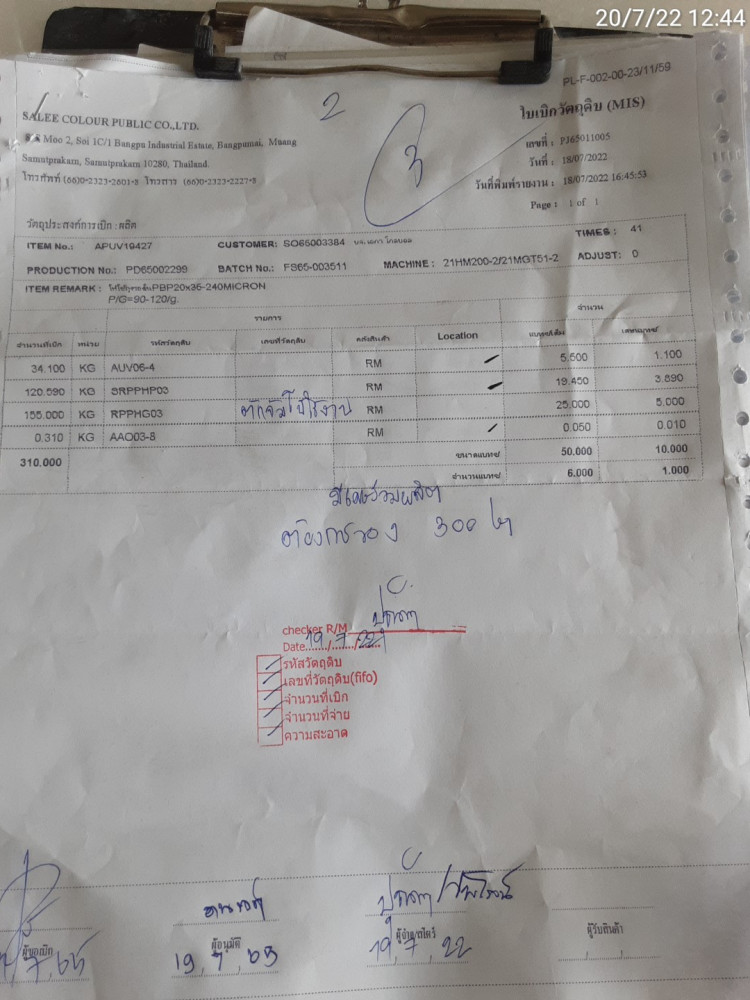 20/7/22 12:44
PL-F-002-00-23/11/59
SALEE COLOUR PUBLIC CO.,LTD.
Moo 2, Soi 1C/1 Bangpu Indusrial Estate, Bangpumai, Muang
Samutprakarn, Samutprakarn 10280, Thailand.
โทรศัพท์ (66)0-2323-2601-8 โทรสาร (66)0-2323-2227-8
2
3
ใบเบิกวัตถุดิบ (MIS)
เลขที่ : PJ65011005
วันที่ : 18/07/2022
วันที่พิมพ์รายงาน : 18/07/2022 16:45:53
Page : 1 of 1
วัตถุประสงค์การเบิก :ผลิต
ITEM No.: APUV19427 CUSTOMER: SO65003384 TIMES : 41
PRODUCTION No.: PD65002299 BATCH No.: FS65-003511 MACHINE : 21HM200-2/21MGT51-2 ADJUST: 0
ITEM REMARK : PBP20x36-240MICRON
P/G=90-120/g.
รายการ จำนวน
จำนวนที่เบิก หน่วย รหัสวัตถุดิบ เลขที่วัตถุดิบ คลังสินค้า Location
34.100 KG AUV06-4 RM 5.500 1.100
120.590 KG SRPPHP03 RM 19.450 3.890
155.000 KG RPPHG03 RM 25.000 5.000
0.310 KG AAO03-8 RM 0.050 0.010
310.000 ขนาดแบทช์ 50.000 10.000
จำนวนแบทช์ 6.000 1.000
ต้องการของ 300
checker R/M
Date 19/7/22
รหัสวัตถุดิบ
เลขที่วัตถุดิบ(fifo)
จำนวนที่เบิก
จำนวนที่จ่าย
ความสะอาด
ผู้ขอเบิก ผู้อนุมัติ ผู้จ่าย/สโตร์ ผู้รับสินค้า
19, 7, 65 19, 7, 22